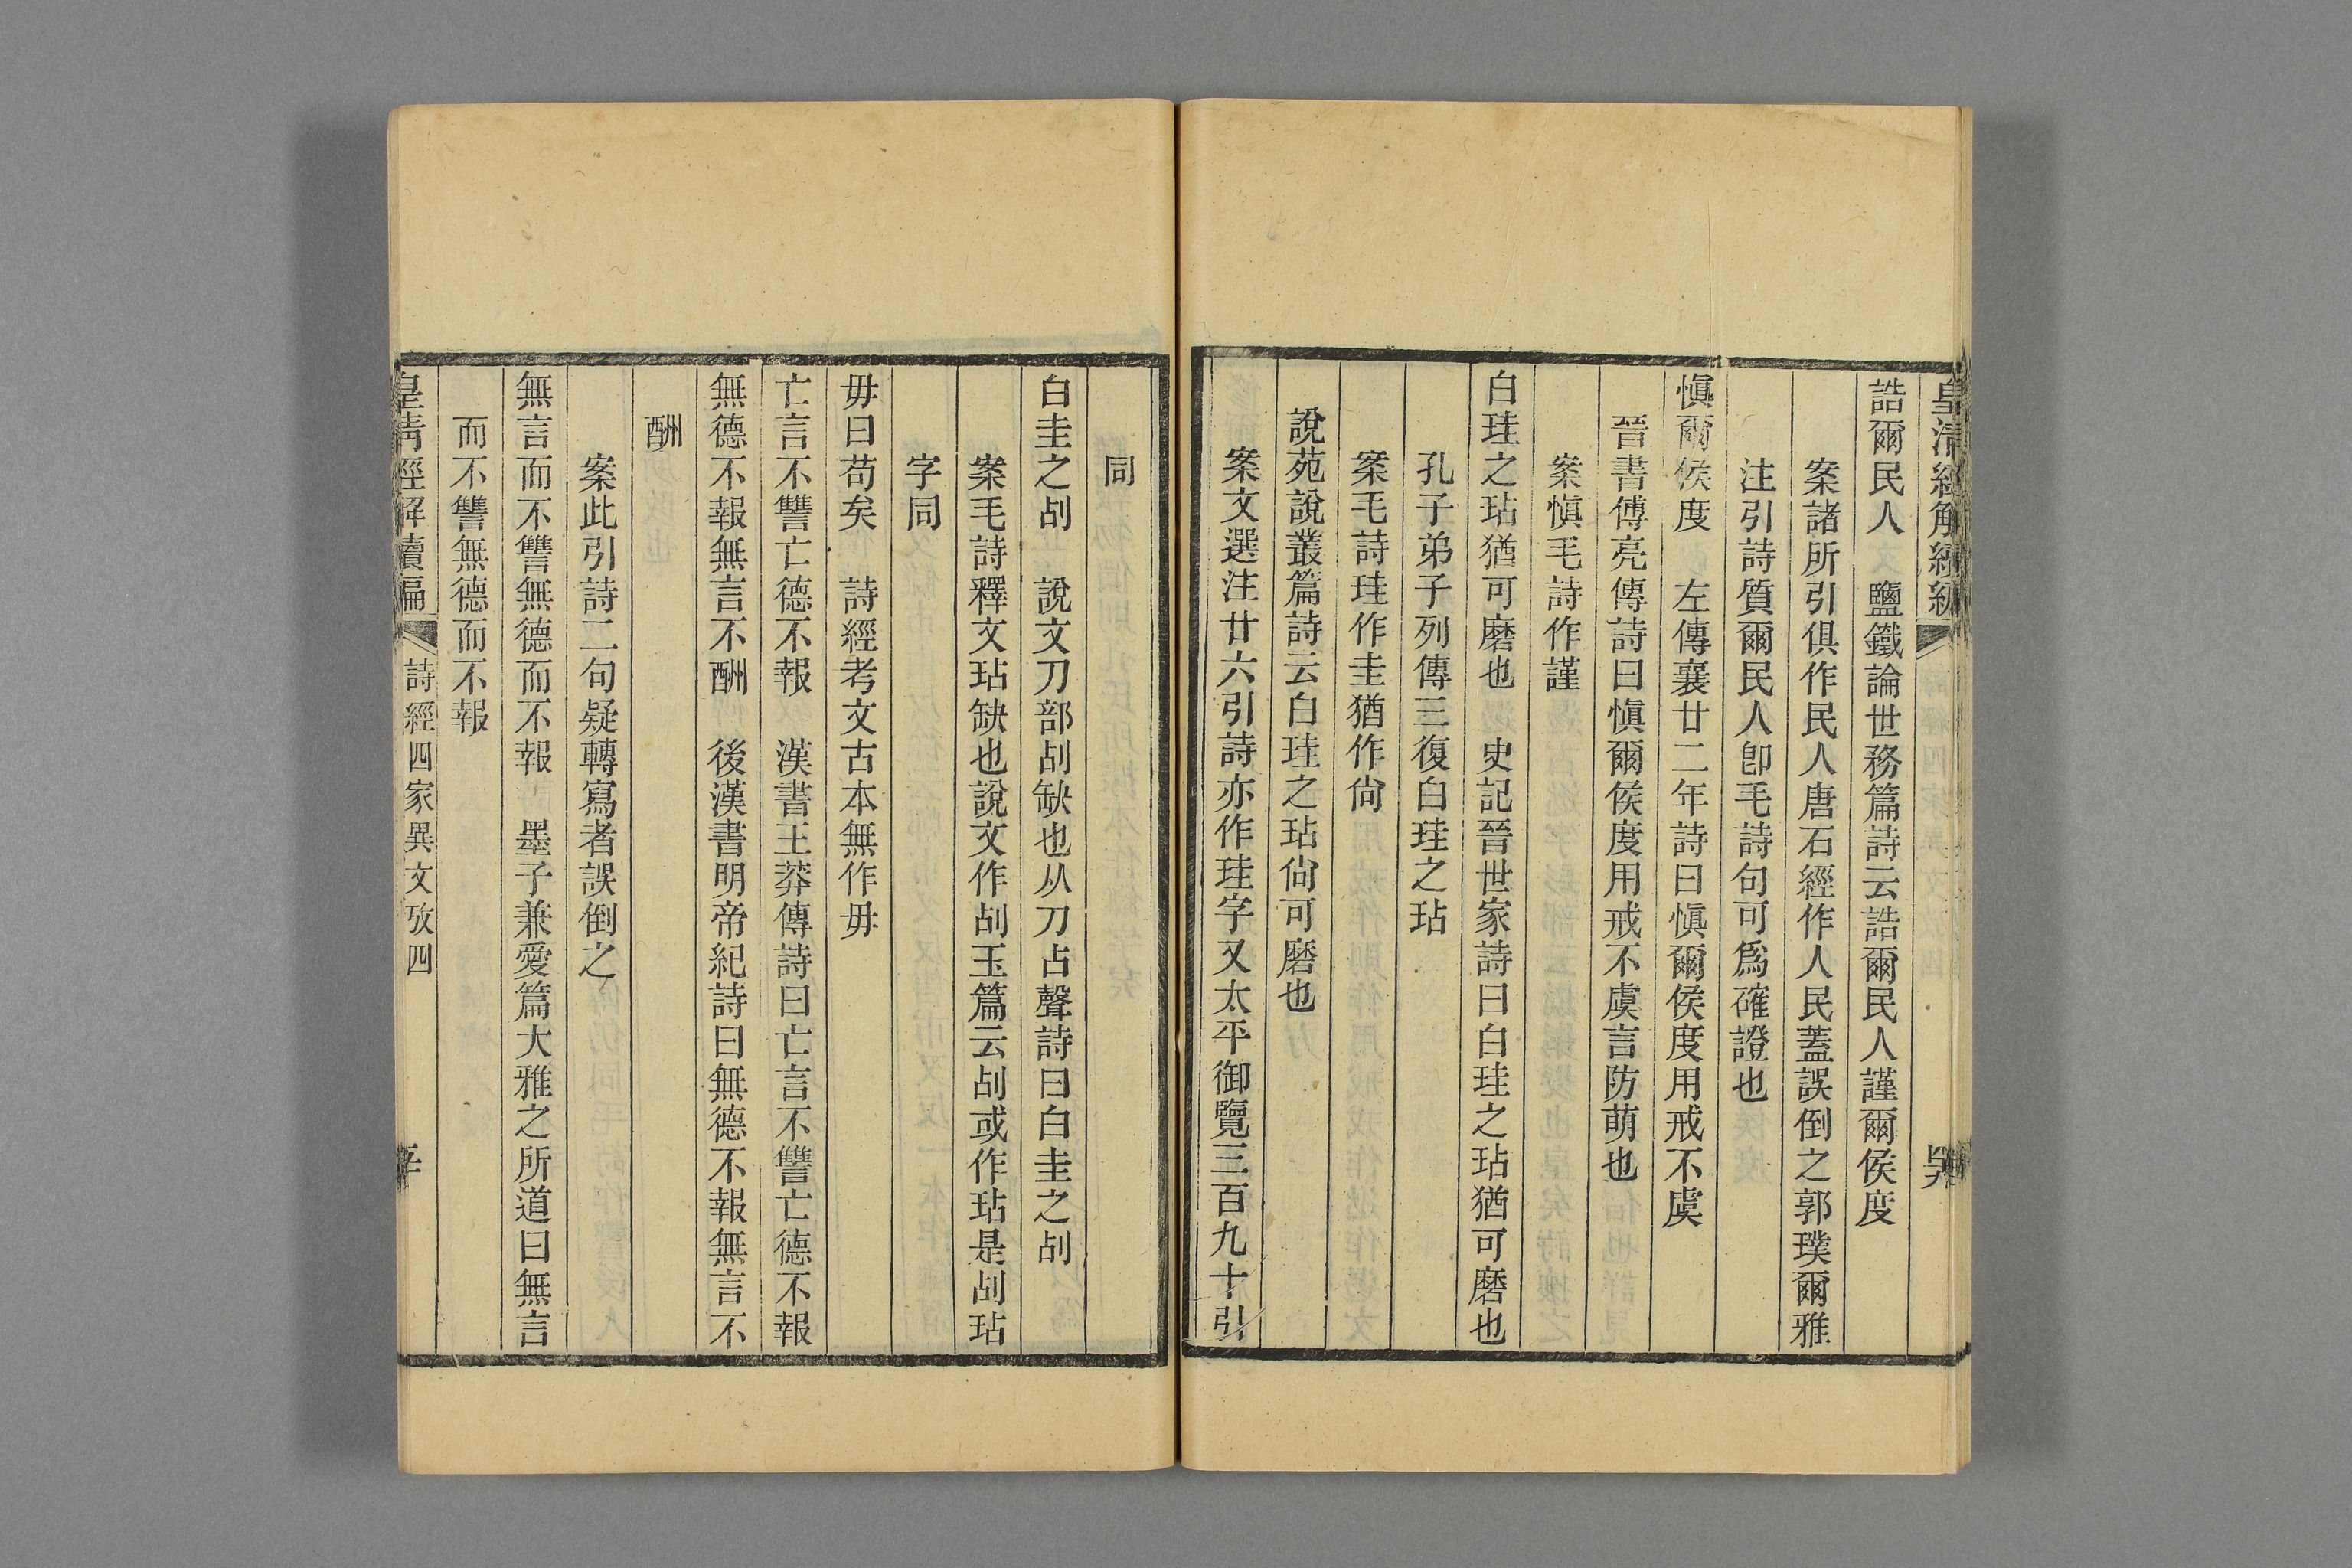 皇清經解續編
誥爾民人　鹽鐵論世務篇詩云誥爾民人謹爾侯度
案諸所引俱作民人唐石經作人民蓋誤倒之郭璞爾雅
注引詩質爾民人卽毛詩句可爲確證也
愼爾侯度　左傳襄廿二年詩曰愼爾侯度用戒不虞
晉書傅亮傳詩曰愼爾侯度用戒不虞言防萌也
案愼毛詩作謹
白珪之玷猶可磨也　史記晉世家詩曰白珪之玷猶可磨也
孔子弟子列傳三復白珪之玷
案毛詩珪作圭猶作尙
說苑說叢篇詩云白珪之玷尙可磨也
案文選注廿六引詩亦作珪字又太平御覽三百九十引
同
白圭之㓠　說文刀部㓠缺也从刀占聲詩曰白圭之㓠
案毛詩釋文玷缺也說文作㓠玉篇云㓠或作玷是㓠玷
字同
毋曰苟矣　詩經考文古本無作毋
亡言不讐亡德不報　漢書王莽傳詩曰亡言不讐亡德不報
無德不報無言不酬　後漢書明帝紀詩曰無德不報無言不
酬
案此引詩二句疑轉寫者誤倒之
無言而不讐無德而不報　墨子兼愛篇大雅之所道曰無言
而不讐無德而不報
皇清經解續編　詩經四家異文攷四